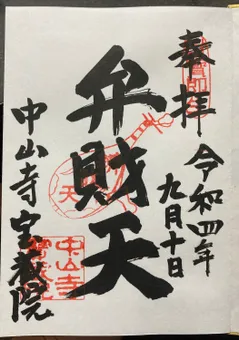 奉拝
令和四年
九月十日
弁財天
中山寺宝蔵院
中山寺